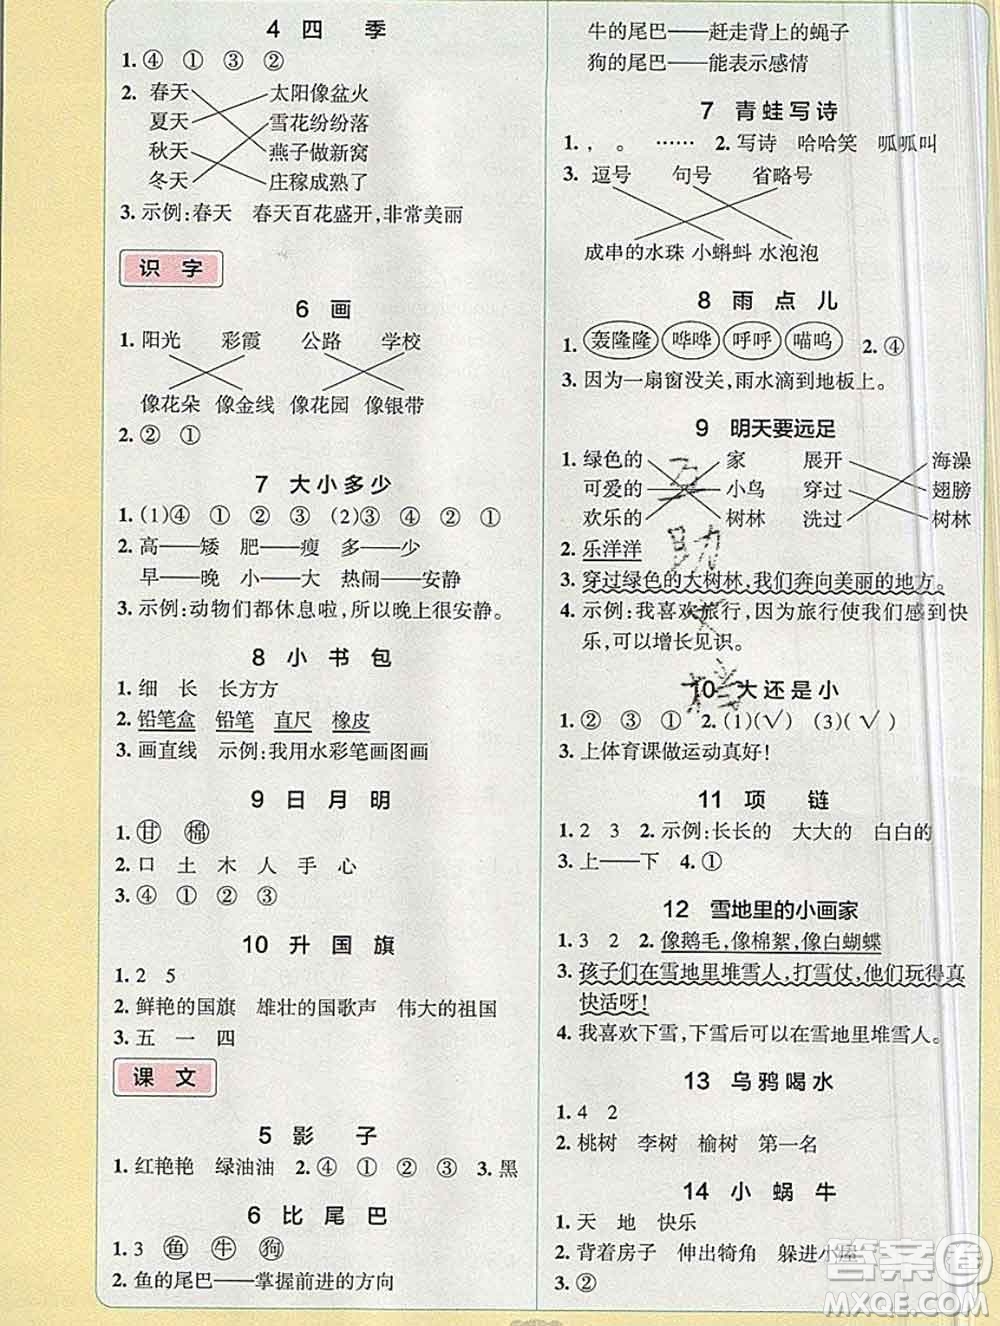 4 四 季
1. ④ ① ③ ②
2. 春天 太阳像盆火
夏天 雪花纷纷落
秋天 燕子做新窝
冬天 庄稼成熟了
3. 示例:春天 春天百花盛开,非常美丽
识 字
6 画
1. 阳光 彩霞 公路 学校
像花朵 像金线 像花园 像银带
2. ② ①
7 大小多少
1. (1)④ ① ② ③ (2)③ ④ ② ①
2. 高——矮 肥——瘦 多——少
早——晚 小——大 热闹——安静
3. 示例:动物们都休息啦,所以晚上很安静。
8 小 书 包
1. 细 长 长方方
2. 铅笔盒 铅笔 直尺 橡皮
3. 画直线 示例:我用水彩笔画图画
9 日 月 明
1. 甘 棉
2. 口 土 木 人 手 心
3. ④ ① ② ③
10 升 国 旗
1. 2 5
2. 鲜艳的国旗 雄壮的国歌声 伟大的祖国
3. 五 一 四
课 文
5 影 子
1. 红艳艳 绿油油 2. ④ ① ② ③ 3. 黑
6 比 尾 巴
1. 3 鱼 牛 狗
2. 鱼的尾巴——掌握前进的方向
牛的尾巴——赶走背上的蝇子
狗的尾巴——能表示感情
7 青蛙写诗
1. , 。 …… 2. 写诗 哈哈笑 呱呱叫
3. 逗号 句号 省略号
成串的水珠 小蝌蚪 水泡泡
8 雨 点 儿
1. 轰隆隆 哗哗 呼呼 喵呜 2. ④
3. 因为一扇窗没关,雨水滴到地板上。
9 明天要远足
1. 绿色的 家 展开 海澡
可爱的 小鸟 穿过 翅膀
欢乐的 树林 洗过 树林
2. 乐洋洋
3. 穿过绿色的大树林,我们奔向美丽的地方。
4. 示例:我喜欢旅行,因为旅行使我们感到快
乐,可以增长见识。
10 大 还 是 小
1. ② ③ ① 2. (1)(√) (3)(√)
3. 上体育课做运动真好!
11 项 链
1. 2 3 2. 示例:长长的 大大的 白白的
3. 上——下 4. ①
12 雪地里的小画家
1. 3 2 2. 像鹅毛,像棉絮,像白蝴蝶
3. 孩子们在雪地里堆雪人,打雪仗,他们玩得真
快活呀!
4. 我喜欢下雪,下雪后可以在雪地里堆雪人。
13 乌鸦喝水
1. 4 2
2. 桃树 李树 榆树 第一名
14 小 蜗 牛
1. 天 地 快乐
2. 背着房子 伸出犄角 躲进小屋
3. ②
答案圈
MXQE.COM